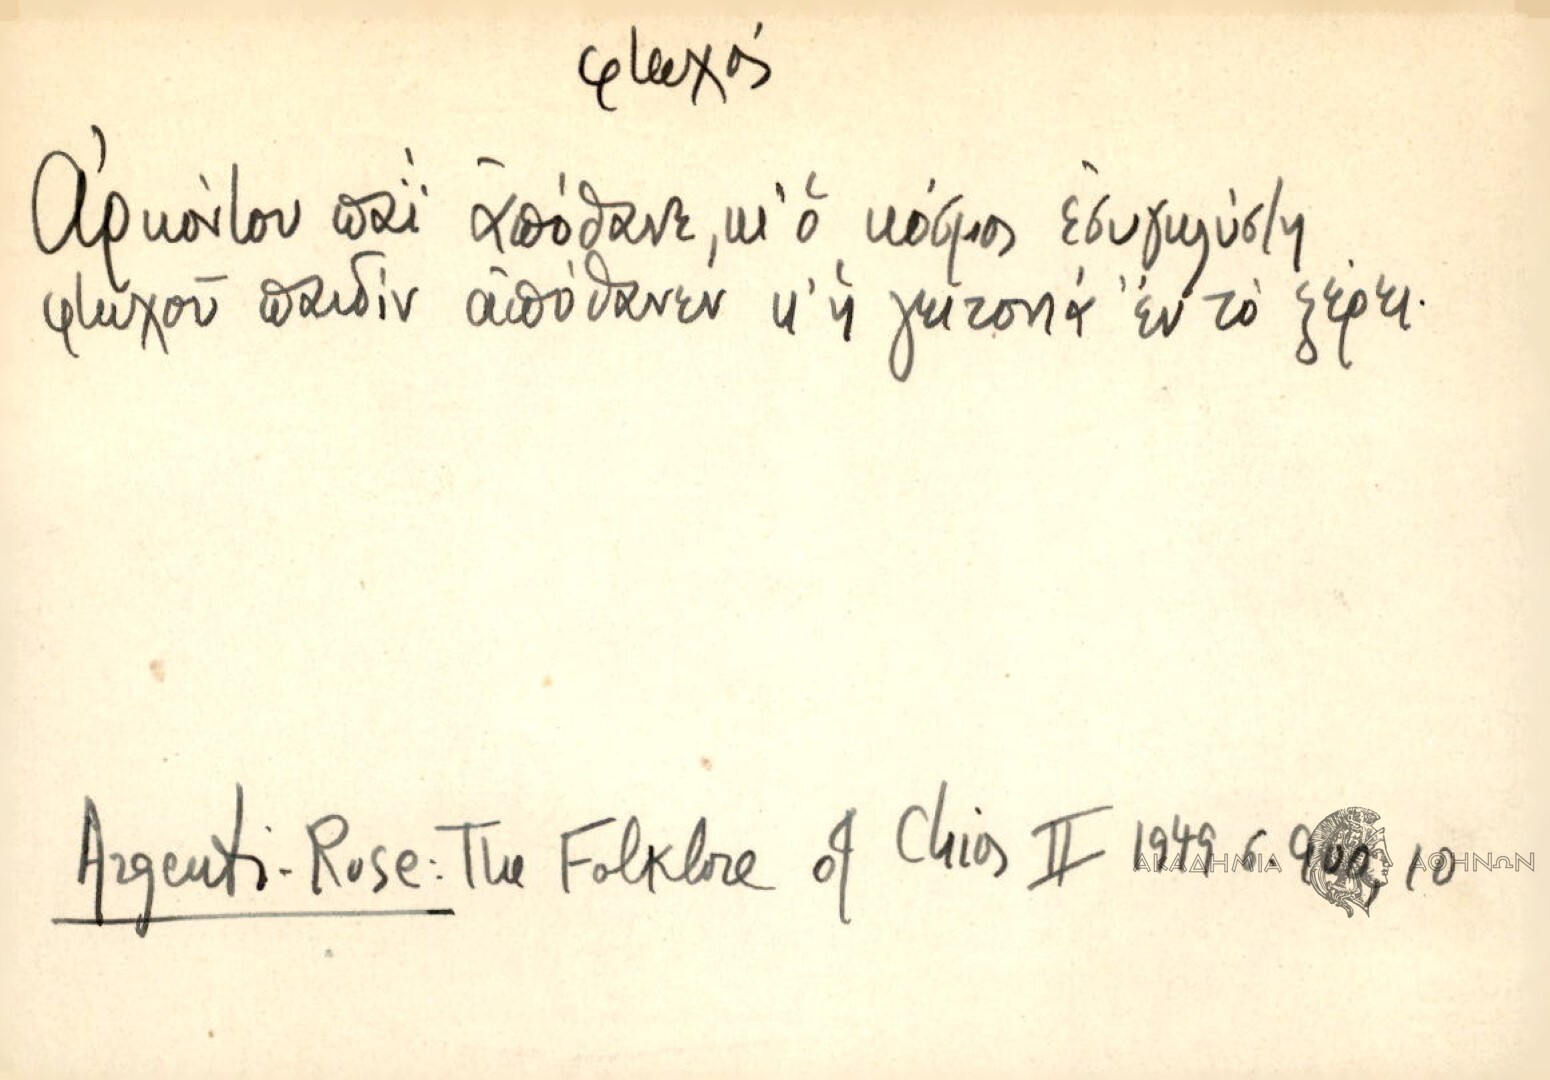 φτωχός
Ἀρκόντου παῒ ἀπόθανε, κι' ὁ κόσμος ἐσυγκλύστη
φτωχοῦ παιδὶν ἀπόθανεν κ' ἡ γειτονιὰ 'ὲν τὸ ξέρει.
Argenti-Rose: The Folklore of Chios II 1949 σ. 900, 10
ΑΚΑΔΗΜΙΑ ΑΘΗΝΩΝ